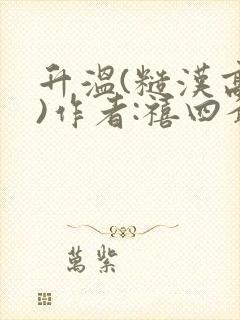 升溫(糙漢高
)作者:禧四
萬紫